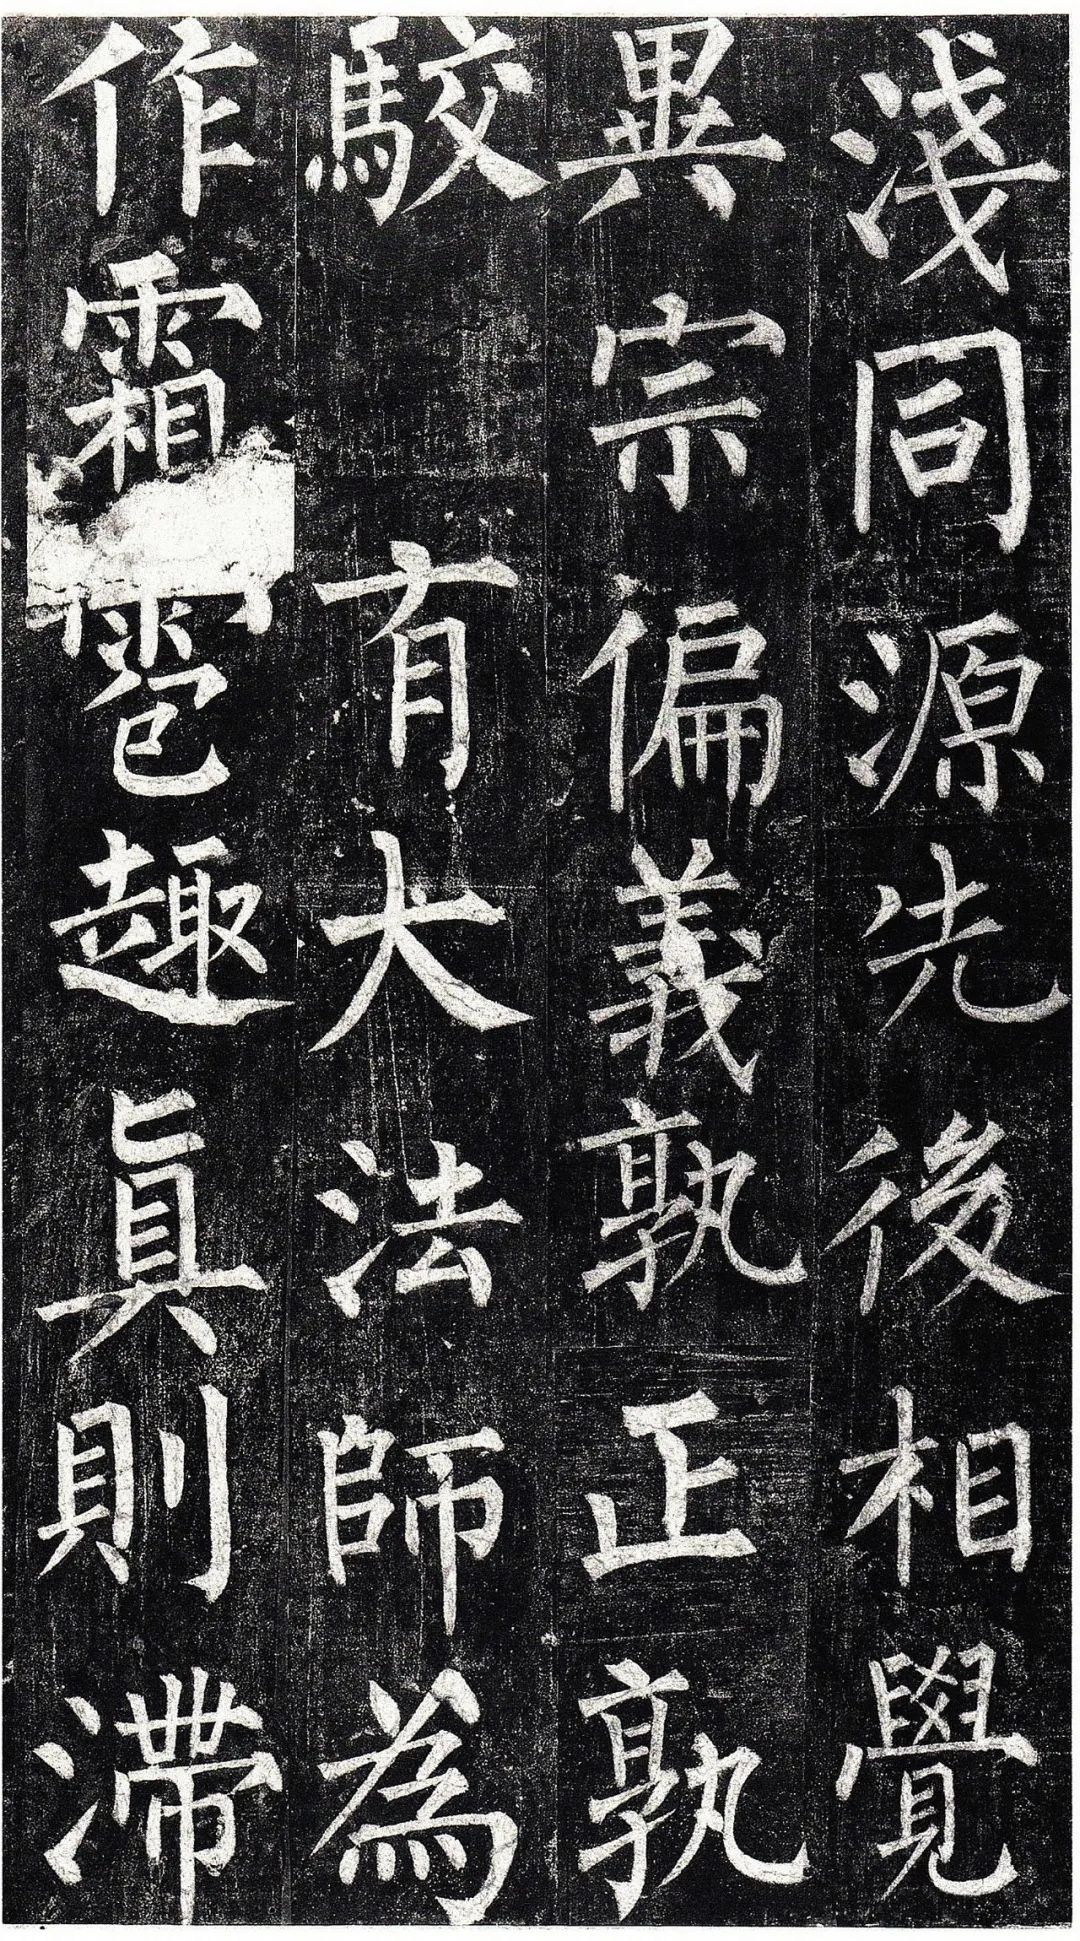 淺同源先後相覺
異宗偏義孰正孰
駮有大法師為
作霜雹趣真則滯